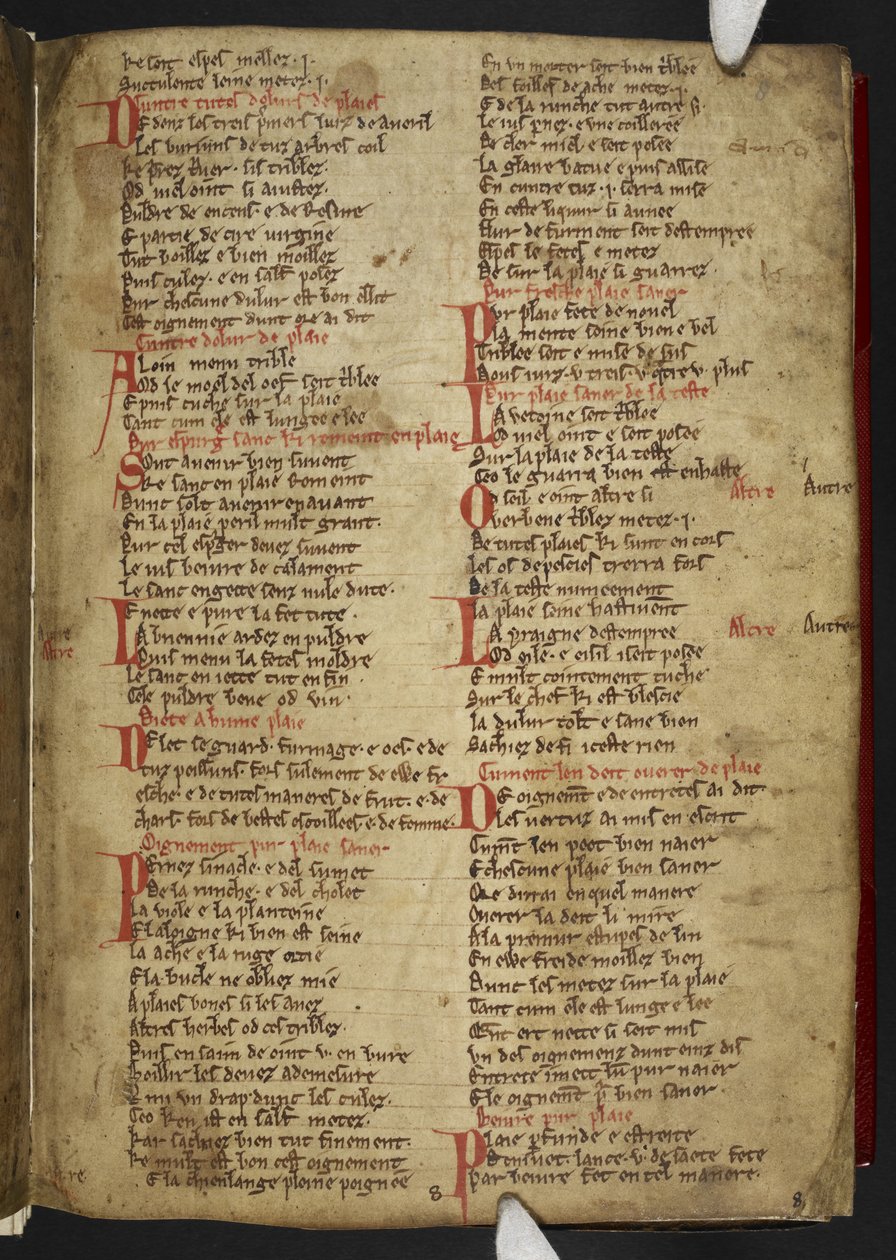 ke soit espes mellez .j.
Succulente seine metez .j.
Cuntre tutes dolurs de plaies
DEdenz les treis pmers iurz de averil
Les bursuns de tuz arbres coil
Ke prez truer . sis triblez.
Od viel oint si aiustez.
Puldre de encens . e de Resine
E partie de cire virgine
Tut boillez e bien moillez
Puis culez . e en salf posez
Pur chescune dulur est bon eslit
Cest oignement dunt ore ai dit
Cuntre dolur de plaie
ALoin menu trible
Od le moel del oef seit tblee
E puis cuche sur la plaie
Tant cum ele est lungee e lee
Pur espurg sanc ki remeint en plaie
SOut avenir bien suvent
Ke sanc en plaie Remeint
Dunt solt avenir en avant
En la plaie peril mult grant.
Pur cel espger devez suvent
Le ius beivre de calament
Le sanc engette senz nule dute.
E nette e pure la fet tute .
LA briennie ardez en puldre
Puis menu la fetes moldre
Le sanc en iette tut en fin
Cele puldre beve od vin .
Diete a hume plaie
DE let se guard . furmage . e oes . e de
tuz peissuns . fors sulement de ewe fr
esche . e de tutes maneres de frut . e . de
chars fors de bestes escoillees . e . de femme.
Oignement pur plaie saner
PErnez sinacle . e del sumet
De la runche . e del cholet
La viole e la planteine
E l aloigne ki bien est seine
La ache e la ruge ortie
E la bucle ne obliez mie
A plaies bones si les avez
Altres herbes od ces triblez .
Puis en saim de oint v . en bure
Boillir les devez a demesure
Par mi un drap dunc les culez.
Ceo ken ist en salf metez .
Kar sachiez bien tut finement.
Ke mult est bon cest oignement
E la chienlange pleine poignee
En un morter seit bien tblee
Des foilles de ache metez .j.
E de la runche tut autre si.
Le ius pnez . e une coilleree
De cler miel e seit posee
La glaire batue e puis assise
En cuntre tuz .j. serra mise
En ceste liquur si aunee
Flur de furment seit destempree
Espes le fetes e metez
De sur la plaie si guarrez .
Pur fresche plaie saner
PUr plaie fete de novel
La mente seine bien e bel
Triblee seit e mise de sus
Dous iurz . v treis . v qtre v plus
Pur plaie saner de la teste
LA vetoine seit tblee
Od viel oint e seit posee
Sur la plaie de la teste
Ceo le guarra bien est enhaste
OD seil . e oint altre si Altre Autre
Verbene tblez metez .j.
De tutes plaies ki sunt en cors
Les os depescies trerra fors
De la teste numeement
La plaie seine hastivent
LA yraigne destempree Altre Autre
Od oile . e eisil i seit posee
E mult cointement cuche
Sur le chef ki est blescie
La dulur tolt e sane bien
Sachiez de fi iceste rien
Cument len deit overer de plaie
DE oignemt e de entretes ai dit
Les vertuz ai mis en escrit
Cumt len poet bien naier
E chescune plaie bien saner
Ore dirrai en quel manere
Overer la deit li mire
A la premur estupes de lin
En ewe freide moillez bien
Dunc les metez sur la plaie
Tant cum ele est lunge e lee
Qnt ert nette si seit mis
Un des oignemenz dunt einz dis
Entrete imett lu pur naier
E le oignemt p bien saner .
Beivre pur plaie
PLaie pfunde e estreite
De cnivet . lance . v . de saete fete
Par beivre fet en tel manere.
8
8